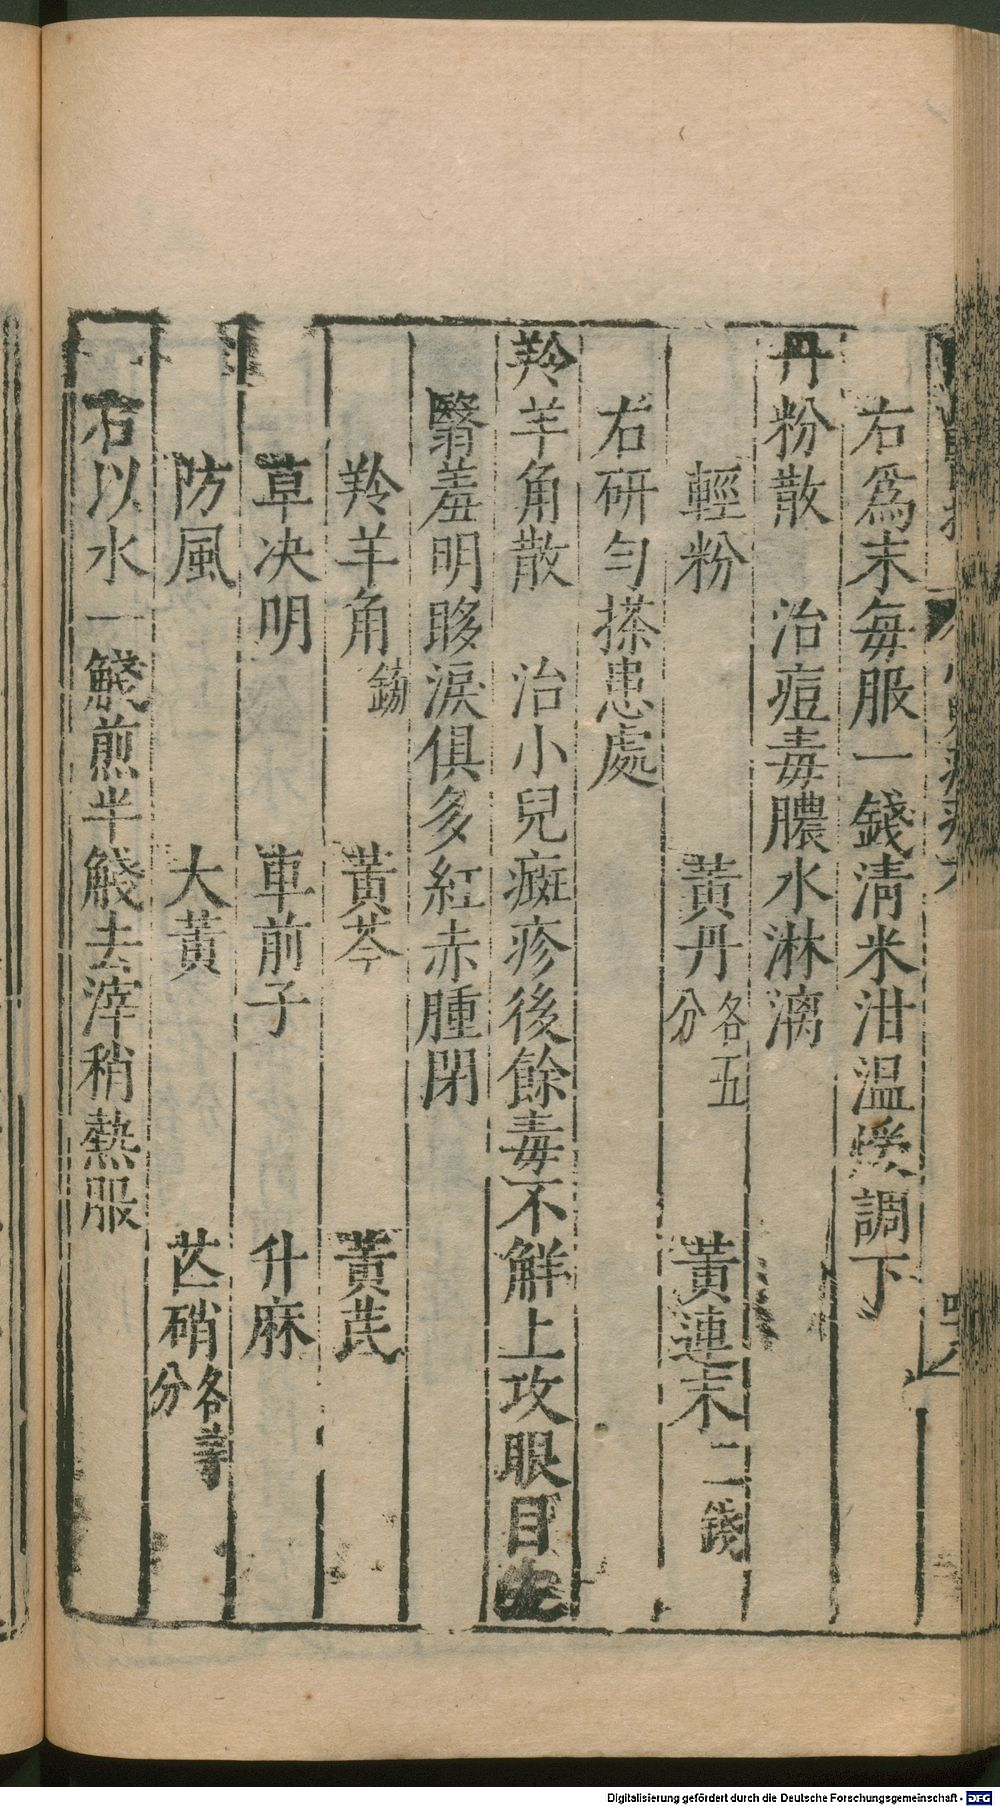 右爲末每服一錢清米泔温煖調下
丹粉散　治痘毒膿水淋漓
輕粉　黃丹各五分　黃連末二錢
右研勻搽患處
羚羊角散　治小兒癍疹後餘毒不觧上攻眼目
翳羞明眵淚俱多紅赤腫閉
羚羊角鎊　黃芩　黃芪
草决明　車前子　升麻
防風　大黃　芒硝各等分
右以水一盞煎半盞去滓稍熱服
Digitalisierung gefördert durch die Deutsche Forschungsgemeinschaft - DFG